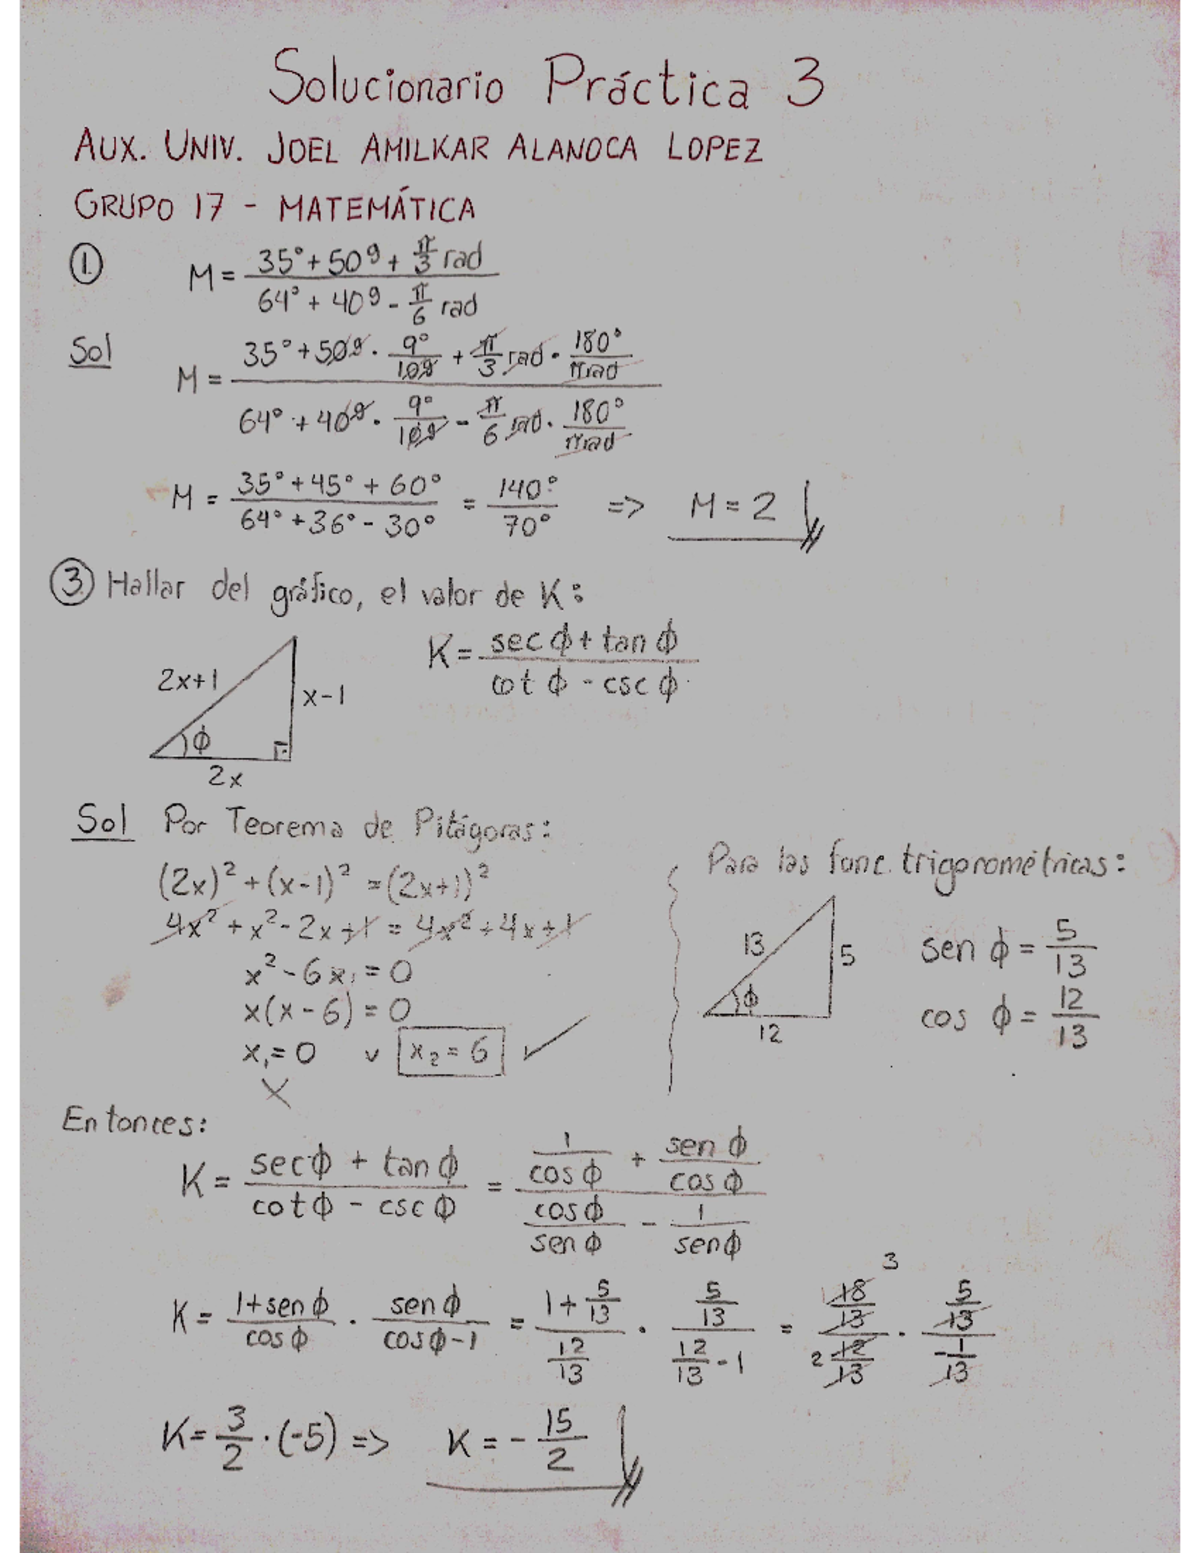 Solucionario Práctica 3
AUX. UNIV. JOEL AMILKAR ALANOCA LOPEZ
GRUPO 17 - MATEMÁTICA
① M = (35° + 50g + π/3 rad) / (64° + 40g - π/6 rad)
Sol M = (35° + 50g · 9°/10g + π/3 rad · 180°/π rad) / (64° + 40g · 9°/10g - π/6 rad · 180°/π rad)
M = (35° + 45° + 60°) / (64° + 36° - 30°) = 140°/70° => M = 2
③ Hallar del gráfico, el valor de K:
K = (sec ϕ + tan ϕ) / (cot ϕ - csc ϕ)
2x+1
x-1
ϕ
2x
Sol Por Teorema de Pitágoras:
(2x)² + (x-1)² = (2x+1)²
4x² + x² - 2x + 1 = 4x² + 4x + 1
x² - 6x = 0
x(x - 6) = 0
x₁ = 0 ∨ x₂ = 6 ✓
X
Para las func. trigonométricas:
13
5
ϕ
12
sen ϕ = 5/13
cos ϕ = 12/13
Entonces:
K = (sec ϕ + tan ϕ) / (cot ϕ - csc ϕ) = (1/cos ϕ + sen ϕ/cos ϕ) / (cos ϕ/sen ϕ - 1/sen ϕ)
K = (1 + sen ϕ)/cos ϕ · sen ϕ/(cos ϕ - 1) = (1 + 5/13)/(12/13) · (5/13)/(12/13 - 1) = 3 (18/13)/2 (12/13) · (5/13)/(-1/13)
K = 3/2 · (-5) => K = - 15/2